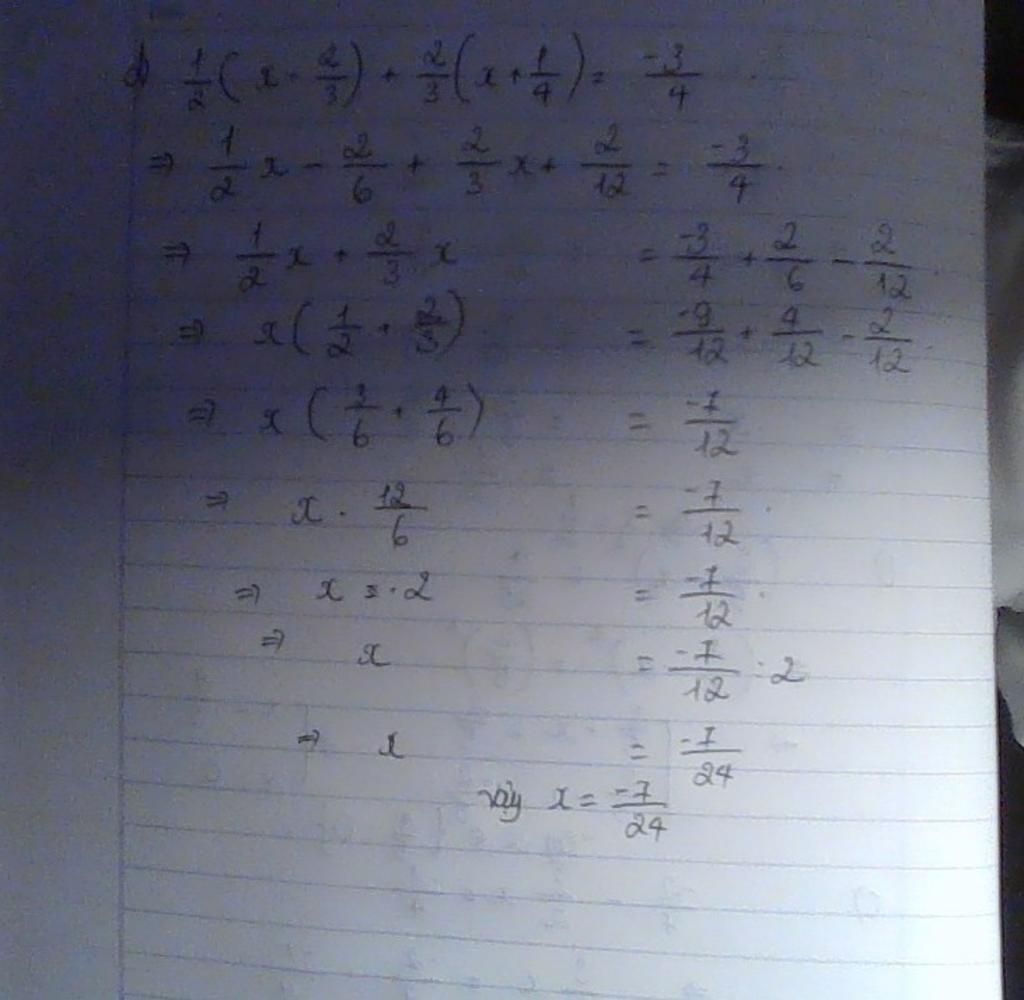 d) 1/2 (x - 2/3) + 2/3 (x + 1/4) = -3/4
⇒ 1/2 x - 2/6 + 2/3 x + 2/12 = -3/4.
⇒ 1/2 x + 2/3 x = -3/4 + 2/6 - 2/12.
⇒ x (1/2 + 2/3) = -9/12 + 4/12 - 2/12.
⇒ x (3/6 + 4/6) = -7/12
⇒ x . 12/6 = -7/12.
⇒ x = . 2 = -7/12.
⇒ x = -7/12 : 2
⇒ x = -7/24
vậy x = -7/24